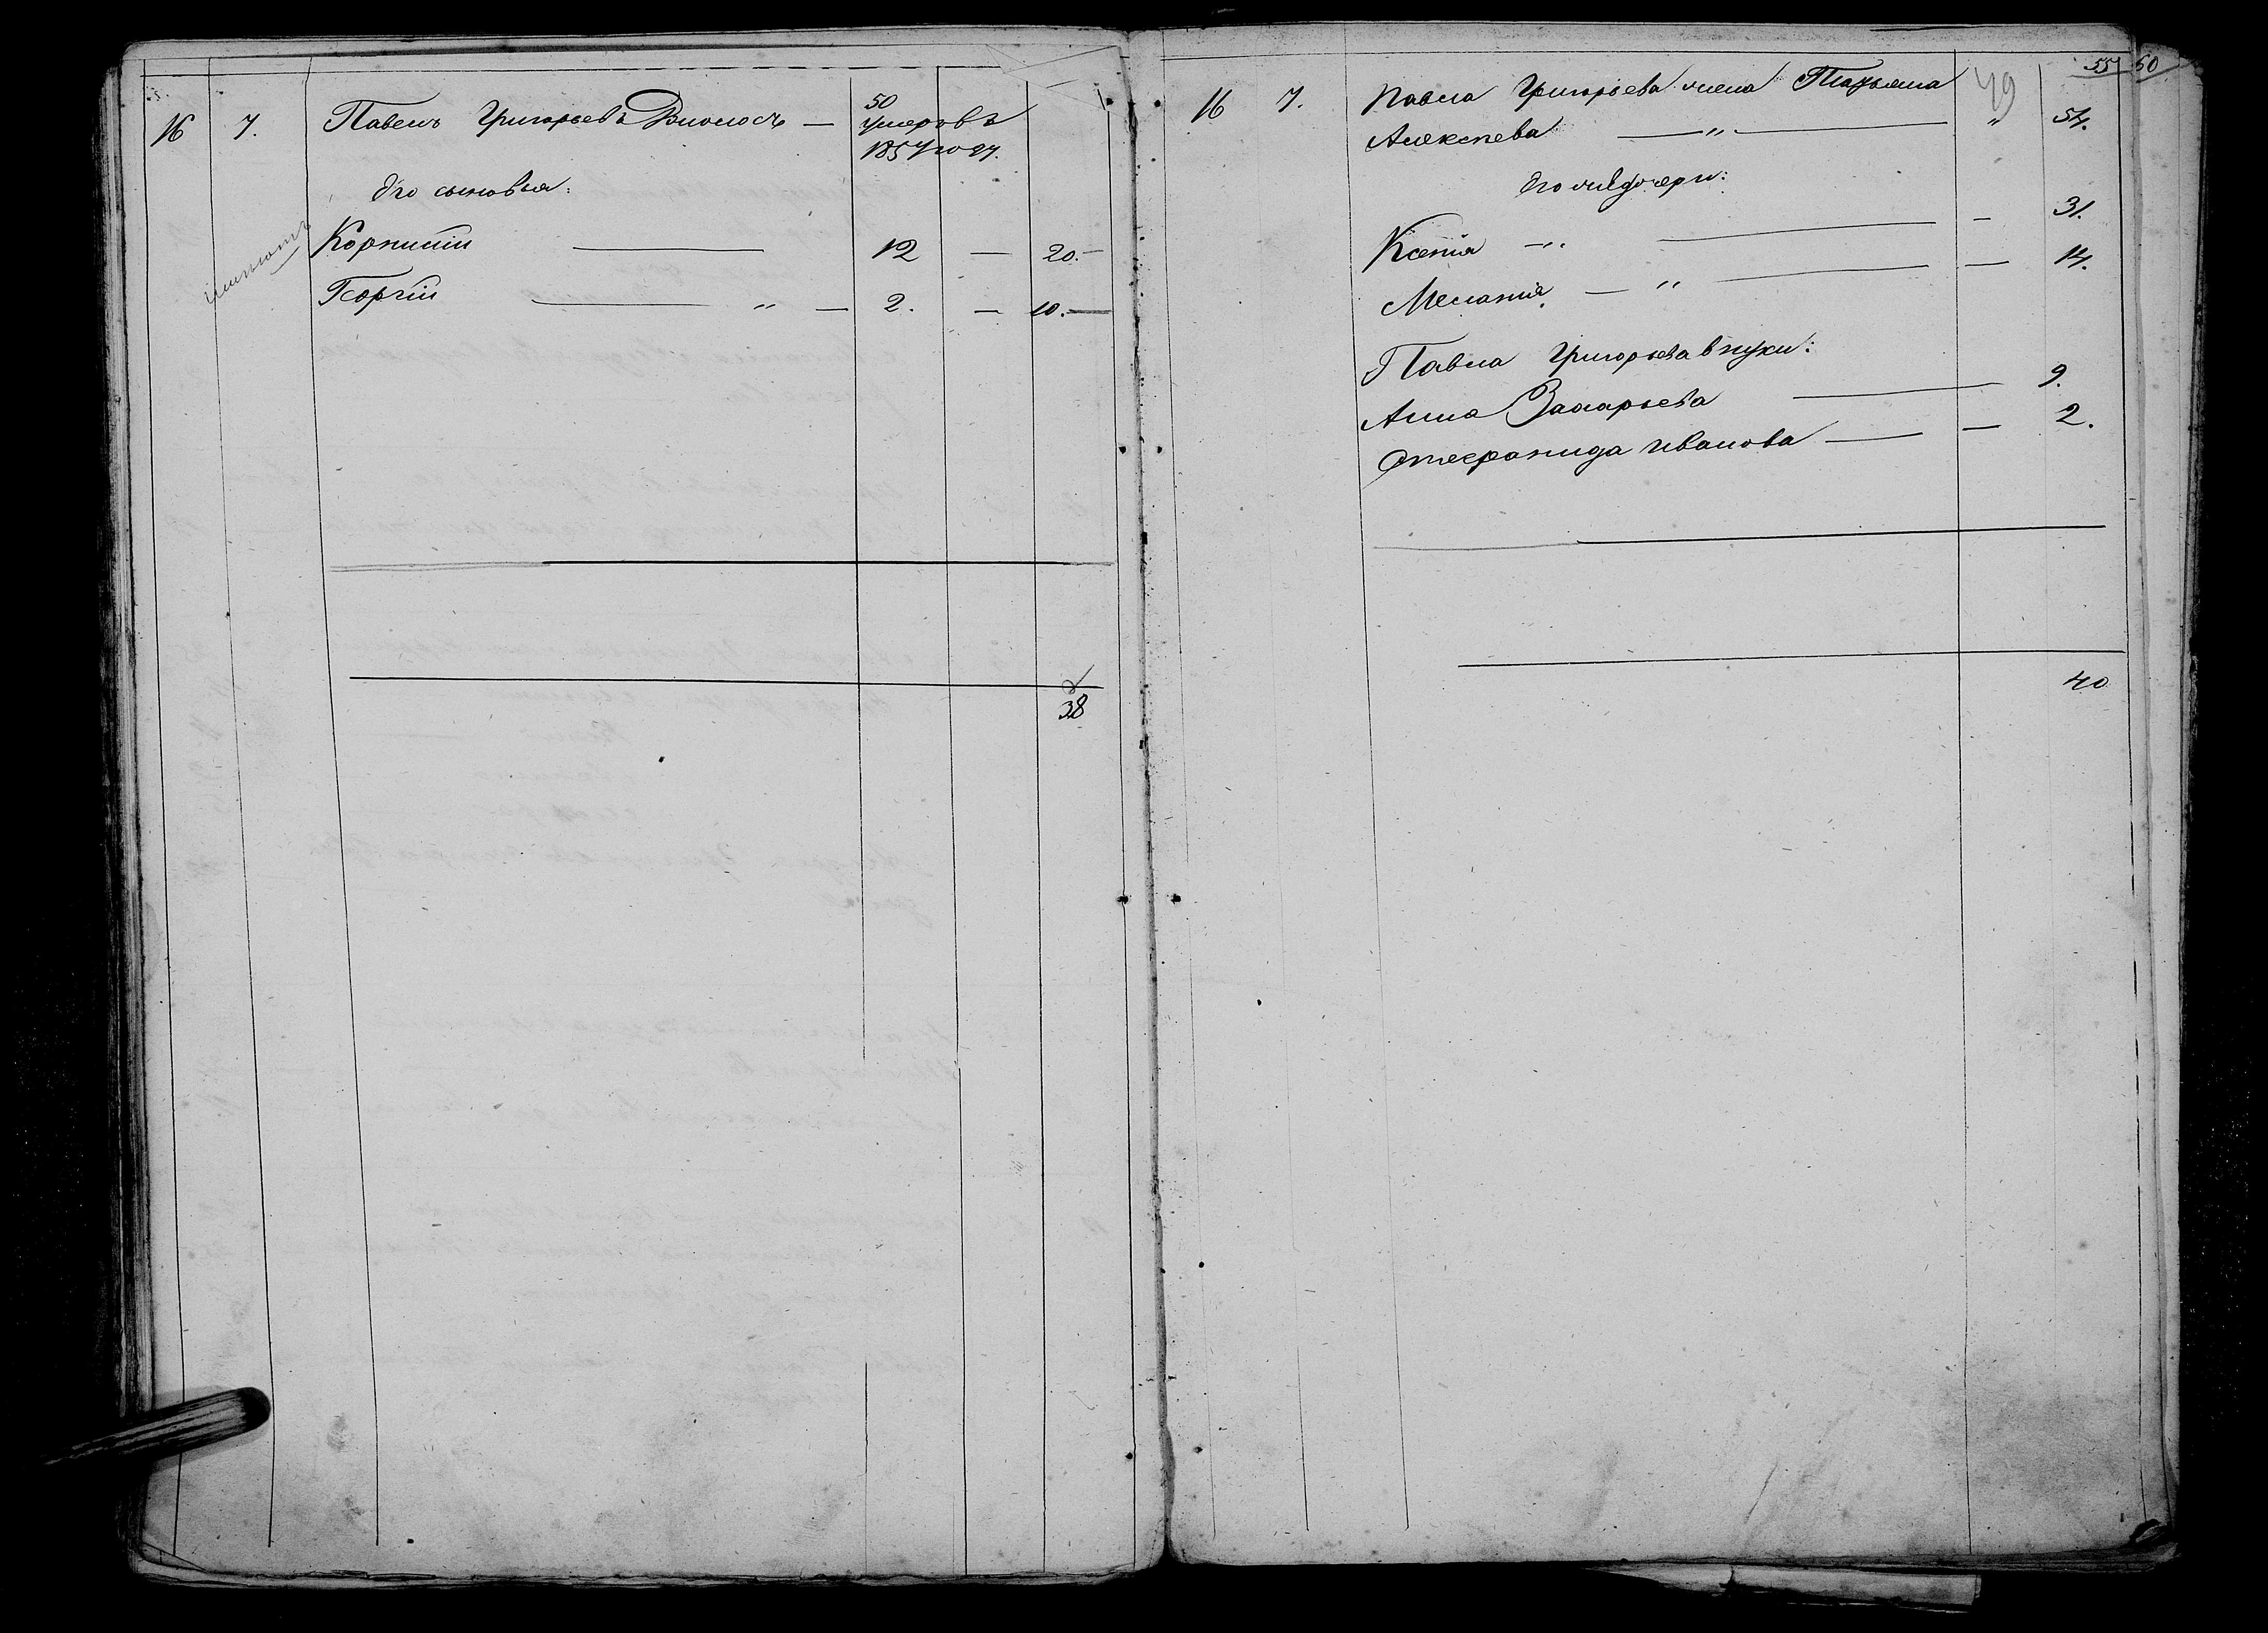 16 7. Павелъ Григорьевъ Билоосъ — 50
умеръ въ
1857 году.
Его сыновья:
Корнилій — 12 — 20.—
Георгій — " — 2. — 10.—
2
38
55 60
49
16 7. Павла Григорьева жена Татьяна
Алексѣева — " — " 54.
Его же дочери:
Ксенія — " — — 31.
Меланія — " — — 14.
Павла Григорьева внуки:
Анна Захарьева — 9.
Степанида Иванова — — 2.
40